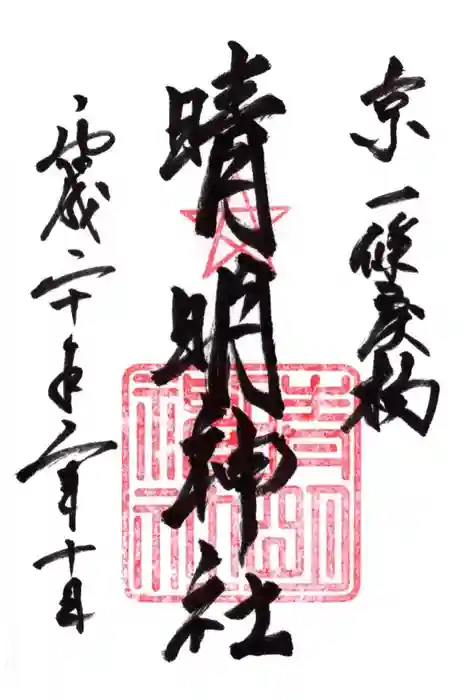 京 一條戻橋
晴明神社
平成二十年 月十日
晴明神社